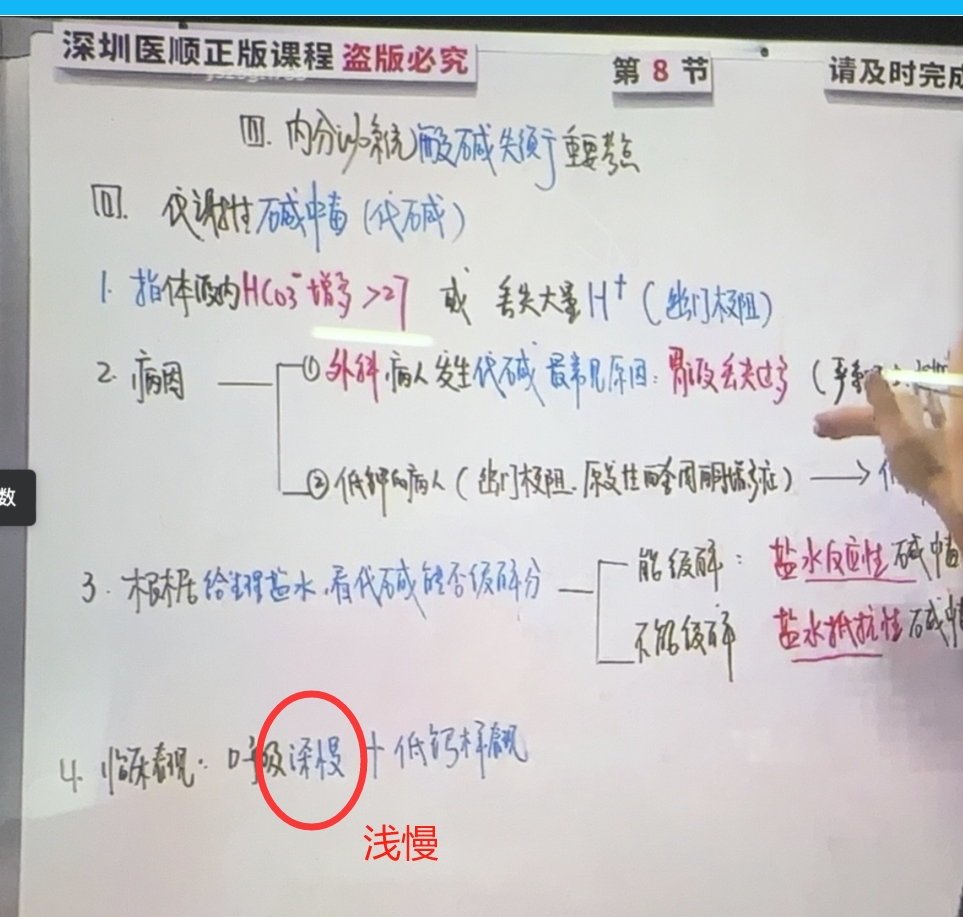 深圳医顺正版课程 盗版必究
第 8 节
请及时完成
四. 内分泌系统 酸碱失衡 重要考点
四. 代谢性碱中毒（代碱）
1. 指体液内HCO3⁻增多 >27 或 丢失大量H⁺（幽门梗阻）
2. 病因
① 外科病人发生代碱最常见原因：胃液丢失过多（严重
② 低钾的病人（幽门梗阻、原发性醛固酮增多症）→ 低
数
3. 根据给生理盐水，看代碱能否缓解分
能缓解：盐水反应性碱中毒
不能缓解 盐水抵抗性碱中毒
4. 临床表现：呼吸深慢 + 低钙样表现
浅慢